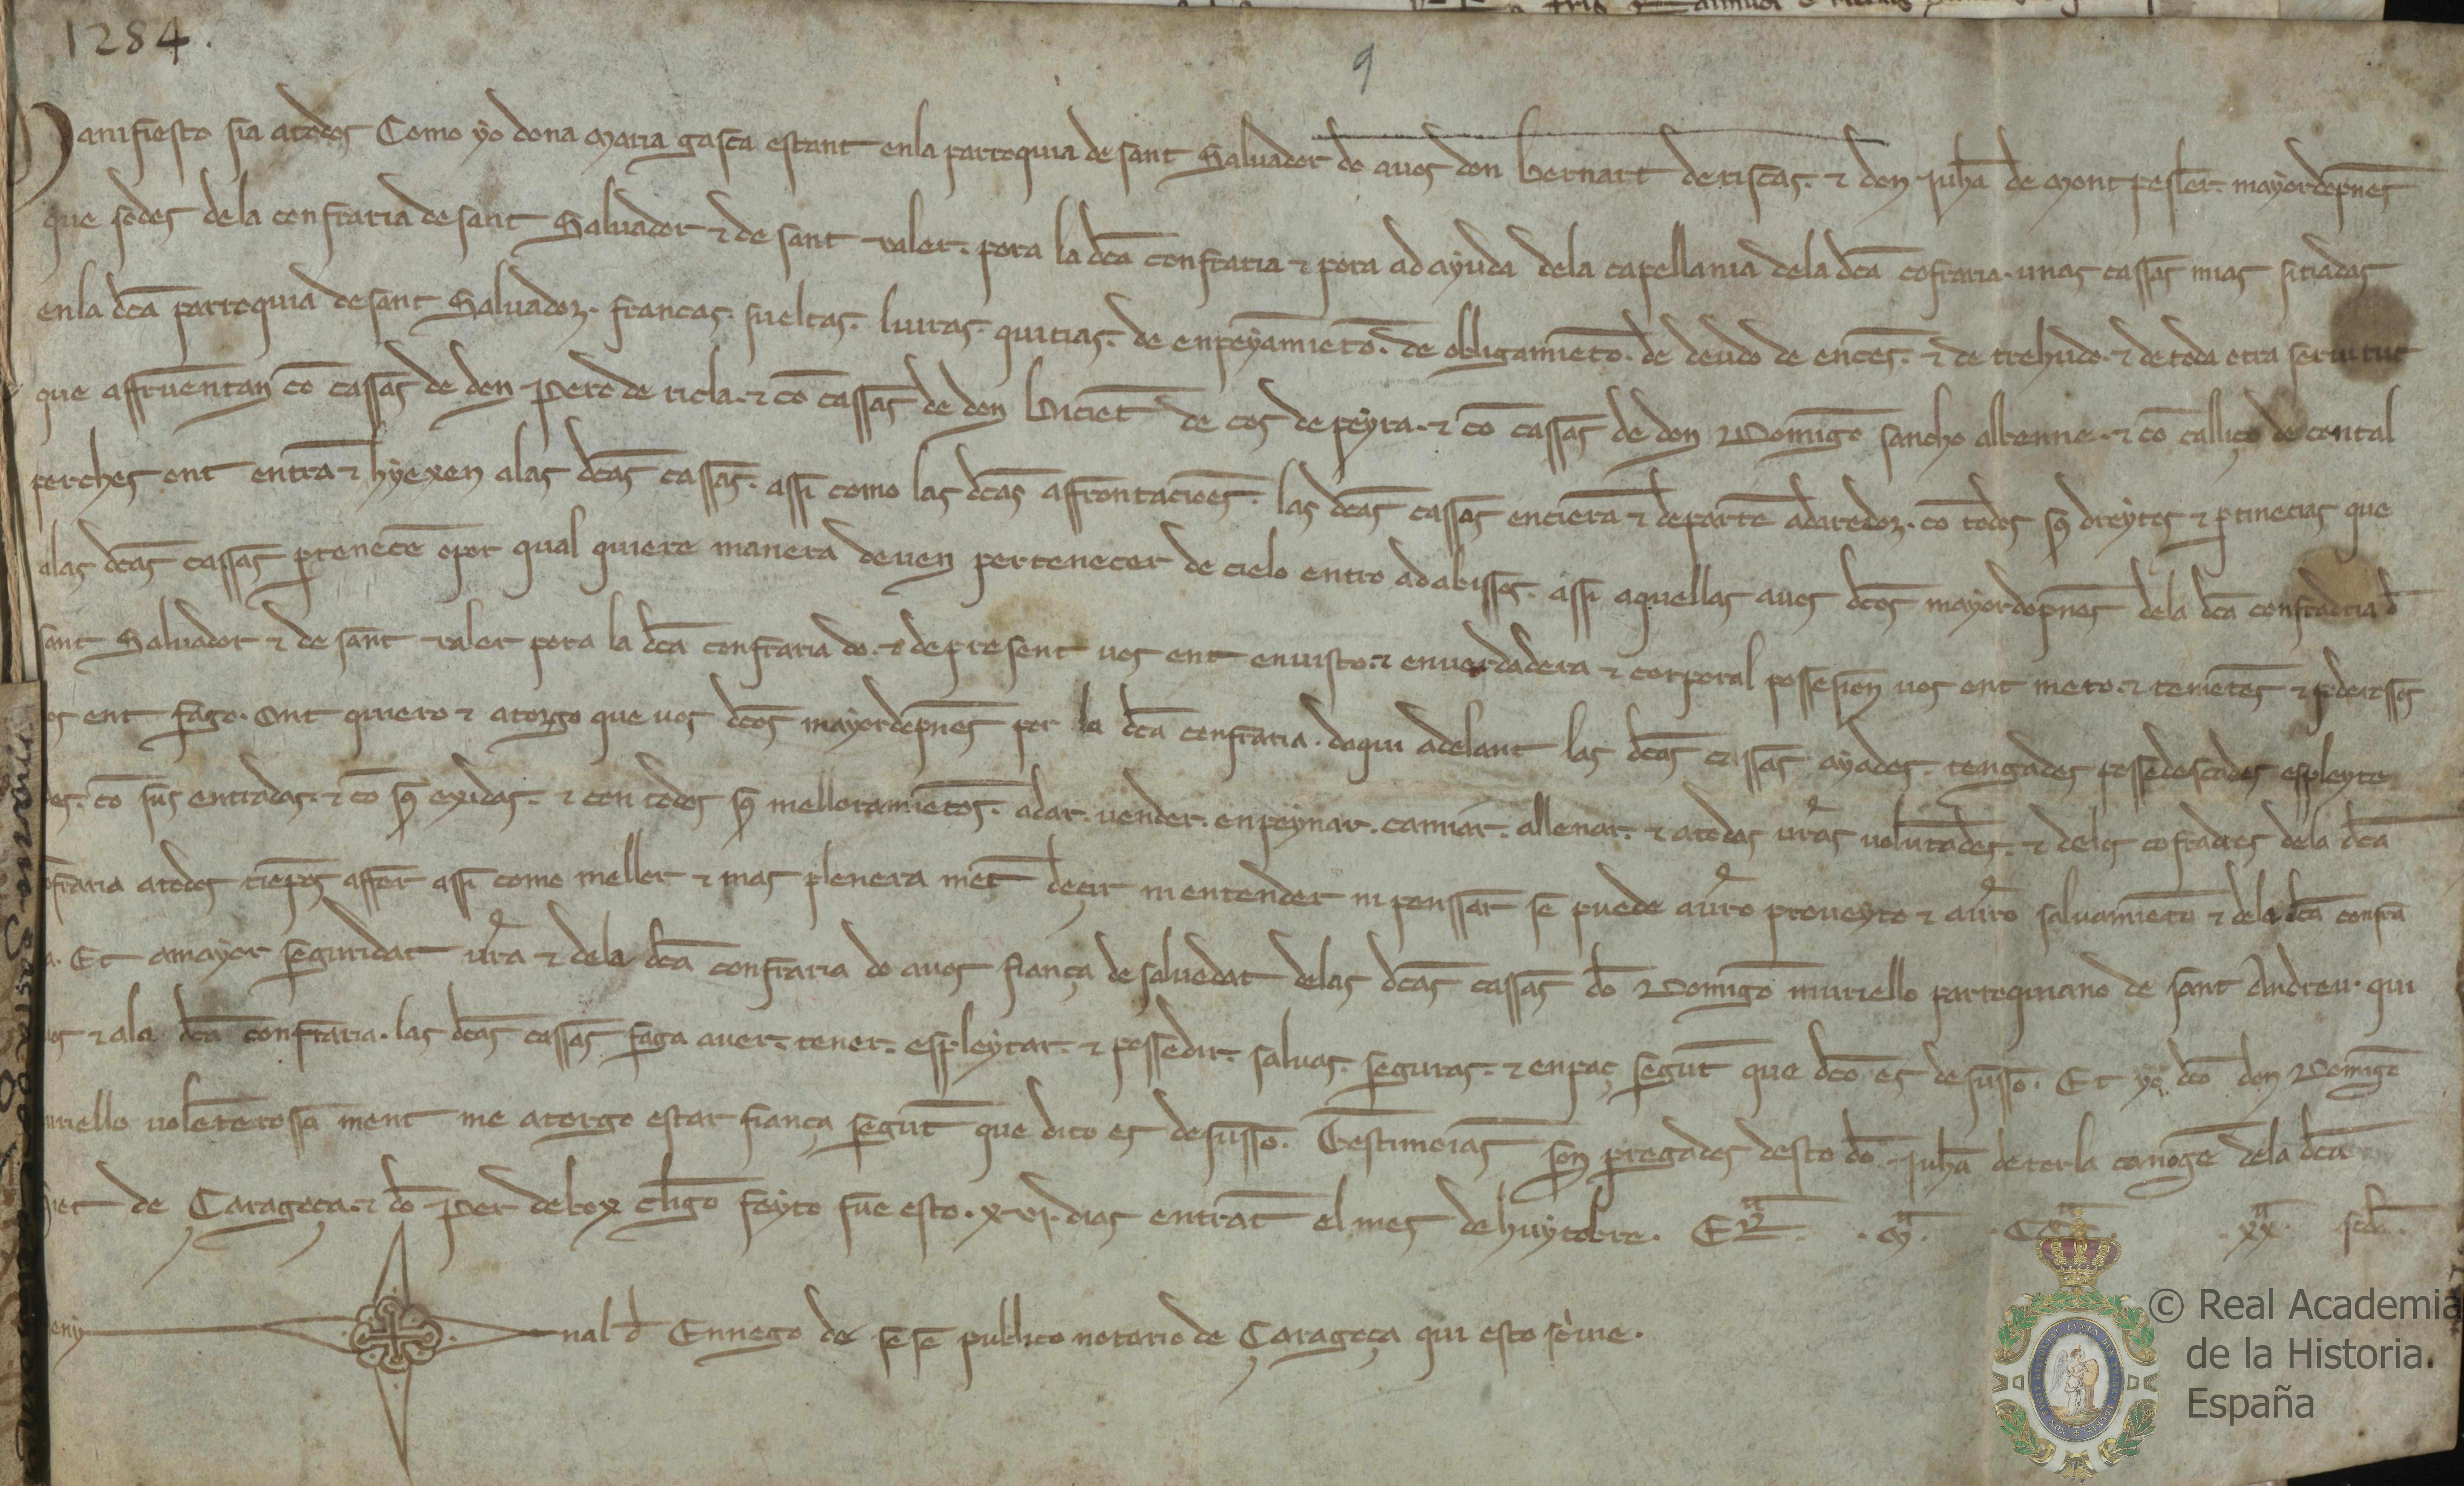 1284.
9
Manifiesto sia atodos Como yo dona Maria gasca estant enla parroquia de sant Salvador do avos don Bernart deriscas. & don Juha de Montpesler. mayordopnes
que sodes dela confraria de sant Salvador & de sant valer. pora la dca confraria & pora ad ayuda dela capellania dela dca cofraria. unas cassas mias sitiadas
enla dca parroquia de sant Salvador. francas. sueltas. livras. quitias. de enpeyamieto. de obligamieto. de deudo de ences. & de trehudo. & de toda otra servitut
que affruentan co cassas de don Pero de ricla. & co cassas de don Biciet de cos de peyra. & co cassas de don Domigo sancho albenne. & co calliço de contal
perches ont entra & hyexen alas dcas cassas. assi como las dcas affrontacioes. las dcas cassas encierra & departe adaredor. co todos sus dreytos & ptinecias que
alas dcas cassas ptenece o por qual quiere manera deven pertenecer de cielo entro ad abissos. assi aquellas avos dcos mayordopnes dela dca confradria d
sant Salvador & de sant valer pora la dca confraria do. & de present vos ent envisto. & enverdadera & corporal possesion vos ent meto. & tenietes & poderosos
os ent fago. Ont quiero & atorgo que vos dcos mayordopnes por la dca confraria. daqui adelant las dcas cassas ayades. tengades possedescades espleyte
es. co sus entradas. & co sus exidas. & con todos sus melloramietos. adar. vender. enpeynar. camiar. allenar. & atodas vras volutades. & delos cofradres dela dca
ofraria atodos tiepos affer assi como mellor & mas plenera met decir ni entender ni penssar se puede avro proveyto & avro salvamieto & dela dca confra
a. Et amayor seguridat vra & dela dca confraria do avos fiança de salvedat delas dcas cassas do Domigo muriello parroquiano de sant Andreu. qui
os & ala dca confraria. las dcas cassas faga aver. tener. espleytar. & possedir. salvas. seguras. & enpaç segut que dco es de susso. Et yo dco don Domigo
uriello voleterossa ment me atorgo estar fiança segut que dito es de susso. Testimoias son pregados desto do Juha de torla canoge dela dca
de Çaragoça. & do Per delrox cligo feyto fue esto. xvi. dias entrat el mes de huytobre. Era. Ma. CCCa. xxa. scda.
nal d Ennego de sese publico notario de Çaragoça qui esto scivie.
© Real Academia
de la Historia.
España